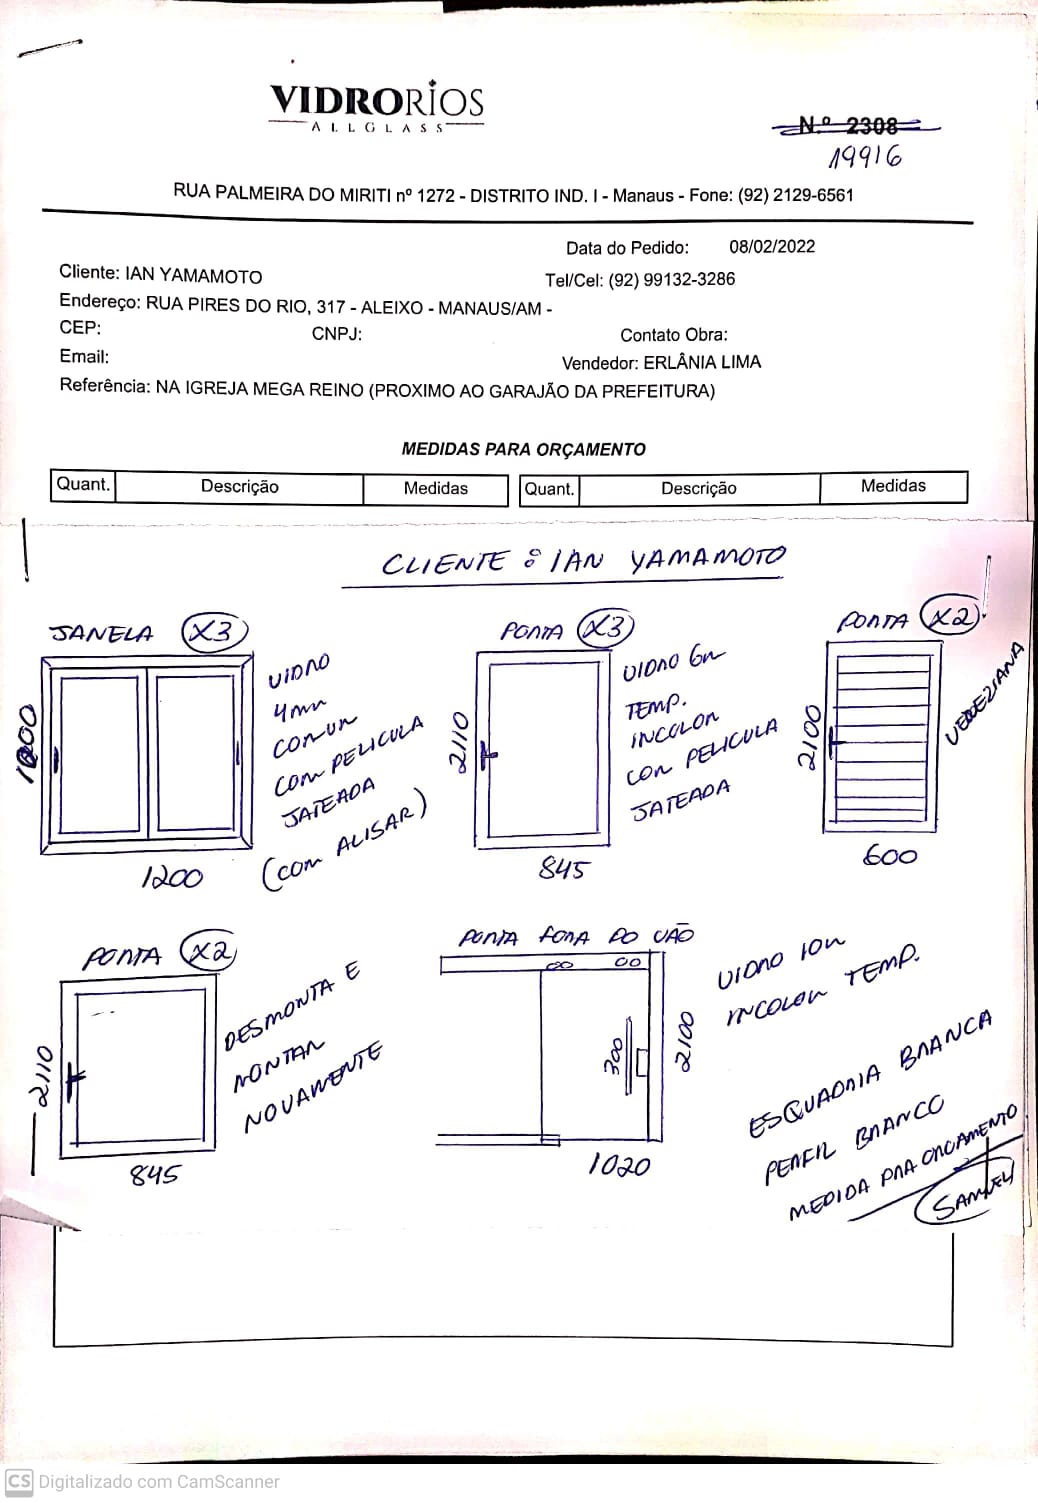 VIDRORIOS
ALLGLASS
N.º 2308
19916
RUA PALMEIRA DO MIRITI nº 1272 - DISTRITO IND. I - Manaus - Fone: (92) 2129-6561
Data do Pedido: 08/02/2022
Cliente: IAN YAMAMOTO
Tel/Cel: (92) 99132-3286
Endereço: RUA PIRES DO RIO, 317 - ALEIXO - MANAUS/AM -
CEP:
CNPJ:
Contato Obra:
Email:
Vendedor: ERLÂNIA LIMA
Referência: NA IGREJA MEGA REINO (PROXIMO AO GARAJÃO DA PREFEITURA)
MEDIDAS PARA ORÇAMENTO
Quant. Descrição Medidas Quant. Descrição Medidas
CLIENTE : IAN YAMAMOTO
JANELA X3
VIDRO
4mm
COMUM
COM PELICULA
JATEADA
(COM ALISAR)
1200
PORTA X3
2110
VIDRO 6m
TEMP.
INCOLOR
COM PELICULA
JATEADA
845
PORTA X2
2100
VENEZIANA
600
PORTA X2
2110
DESMONTA E
MONTAR
NOVAMENTE
845
PORTA FORA DO VÃO
300
2100
1020
VIDRO 10m
INCOLOR TEMP.
ESQUADRIA BRANCA
PERFIL BRANCO
MEDIDA PRA ORÇAMENTO
SAMUEL
CS Digitalizado com CamScanner